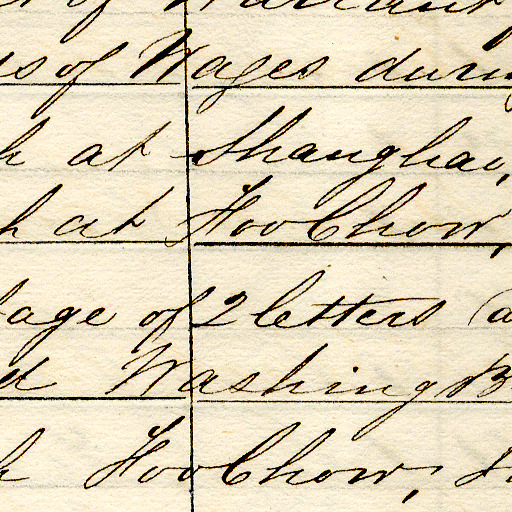 of Warrant
s of Wages durin
h at Shanghai,
h at FooChow,
age of 2 letters (a
d Washing B
h FooChow,